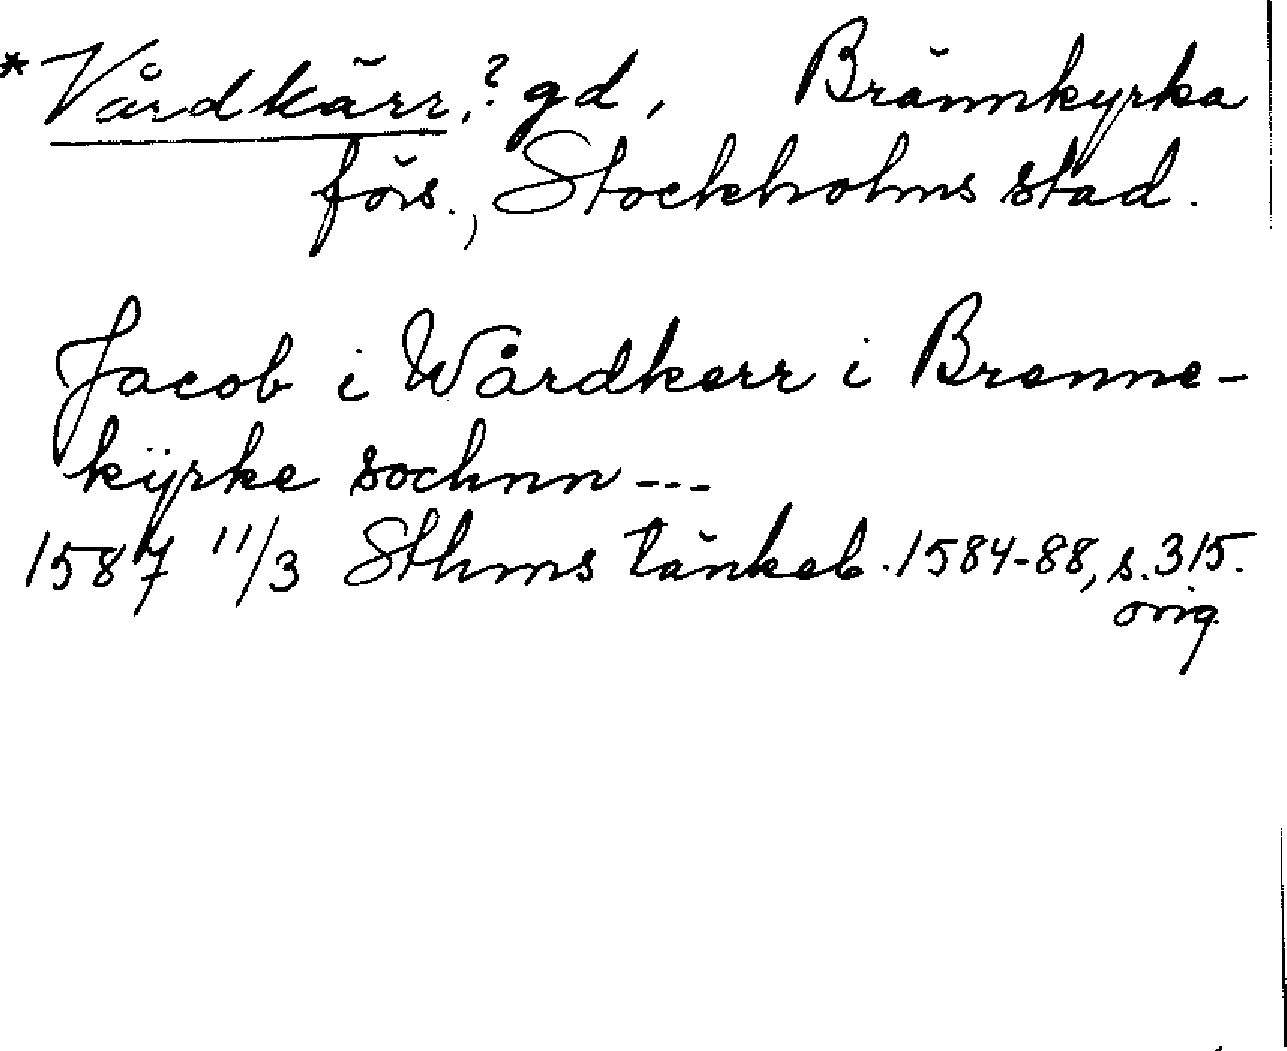 *Vårdkärr,? gd, Brännkyrka
förs., Stockholms stad.
Jacob i Wårdkerr i Brenne-
kÿrke sochnn ---
1587 11/3 Sthms tänkeb. 1584-88, s. 315.
orig.